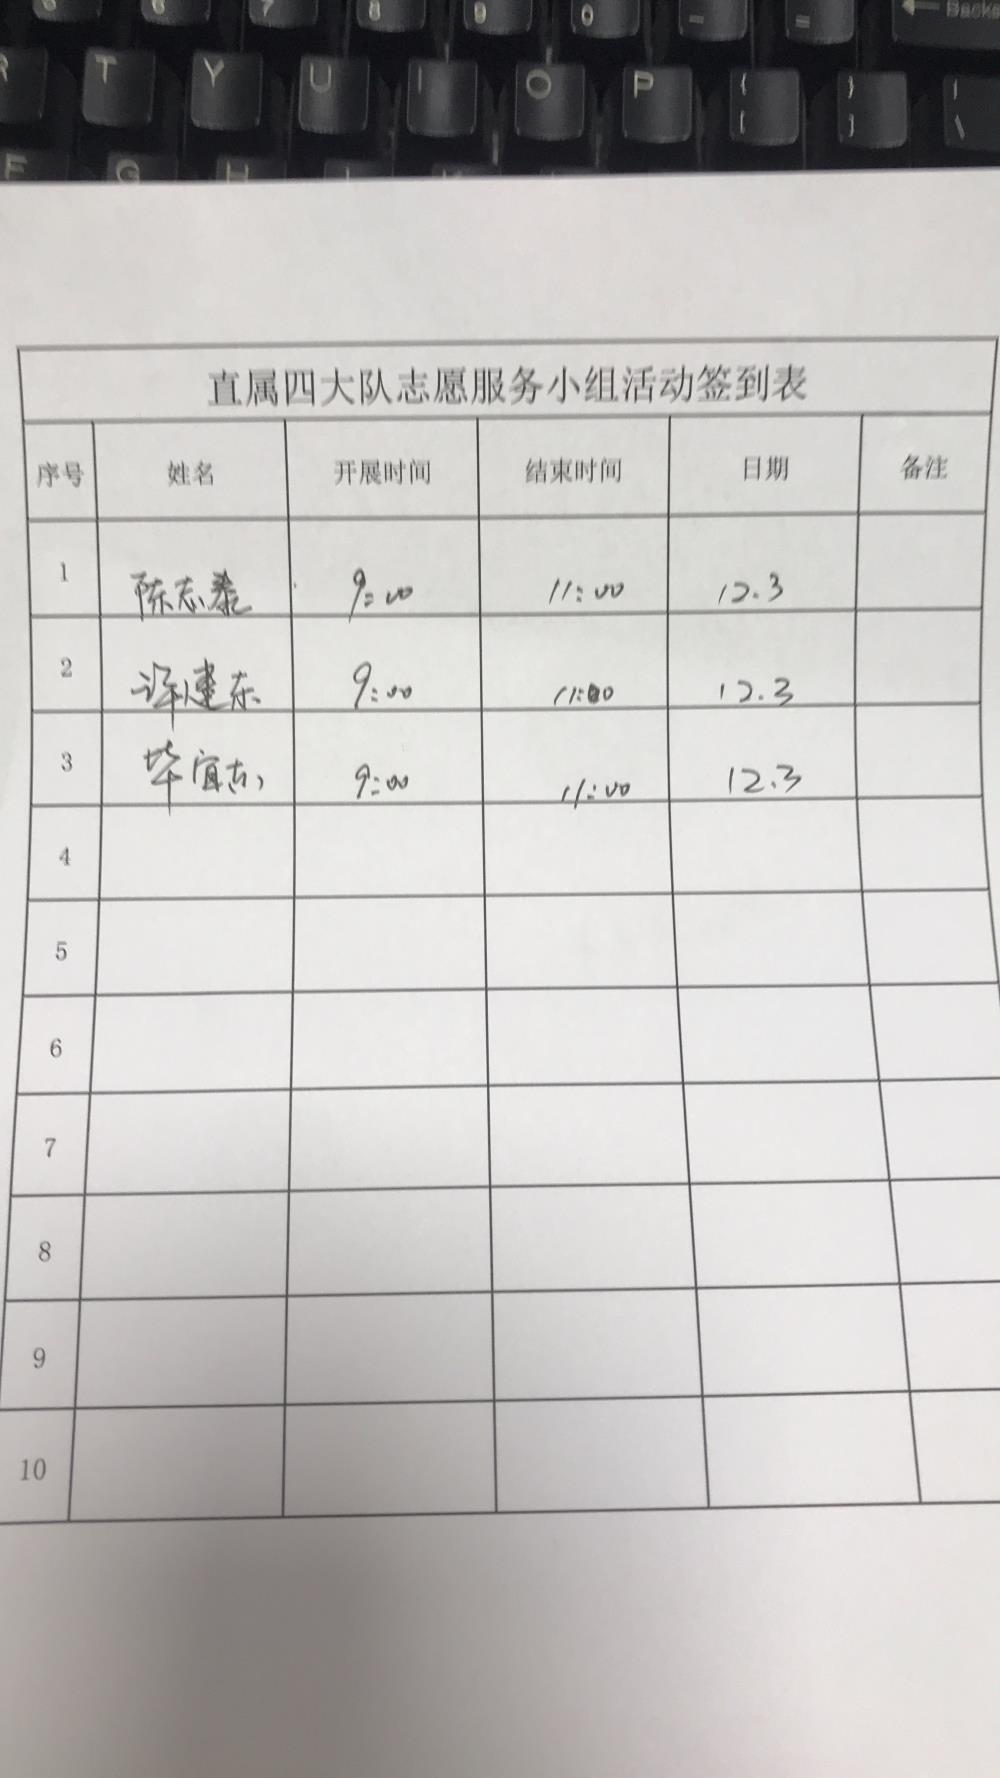 6 7 8 9 0 - = Backs
R T Y U I O P { [ } ] | \
F G H
直属四大队志愿服务小组活动签到表
序号 姓名 开展时间 结束时间 日期 备注
1 陈志泰 9:00 11:00 12.3
2 许建东 9:00 11:00 12.3
3 毕宜志 9:00 11:00 12.3
4
5
6
7
8
9
10